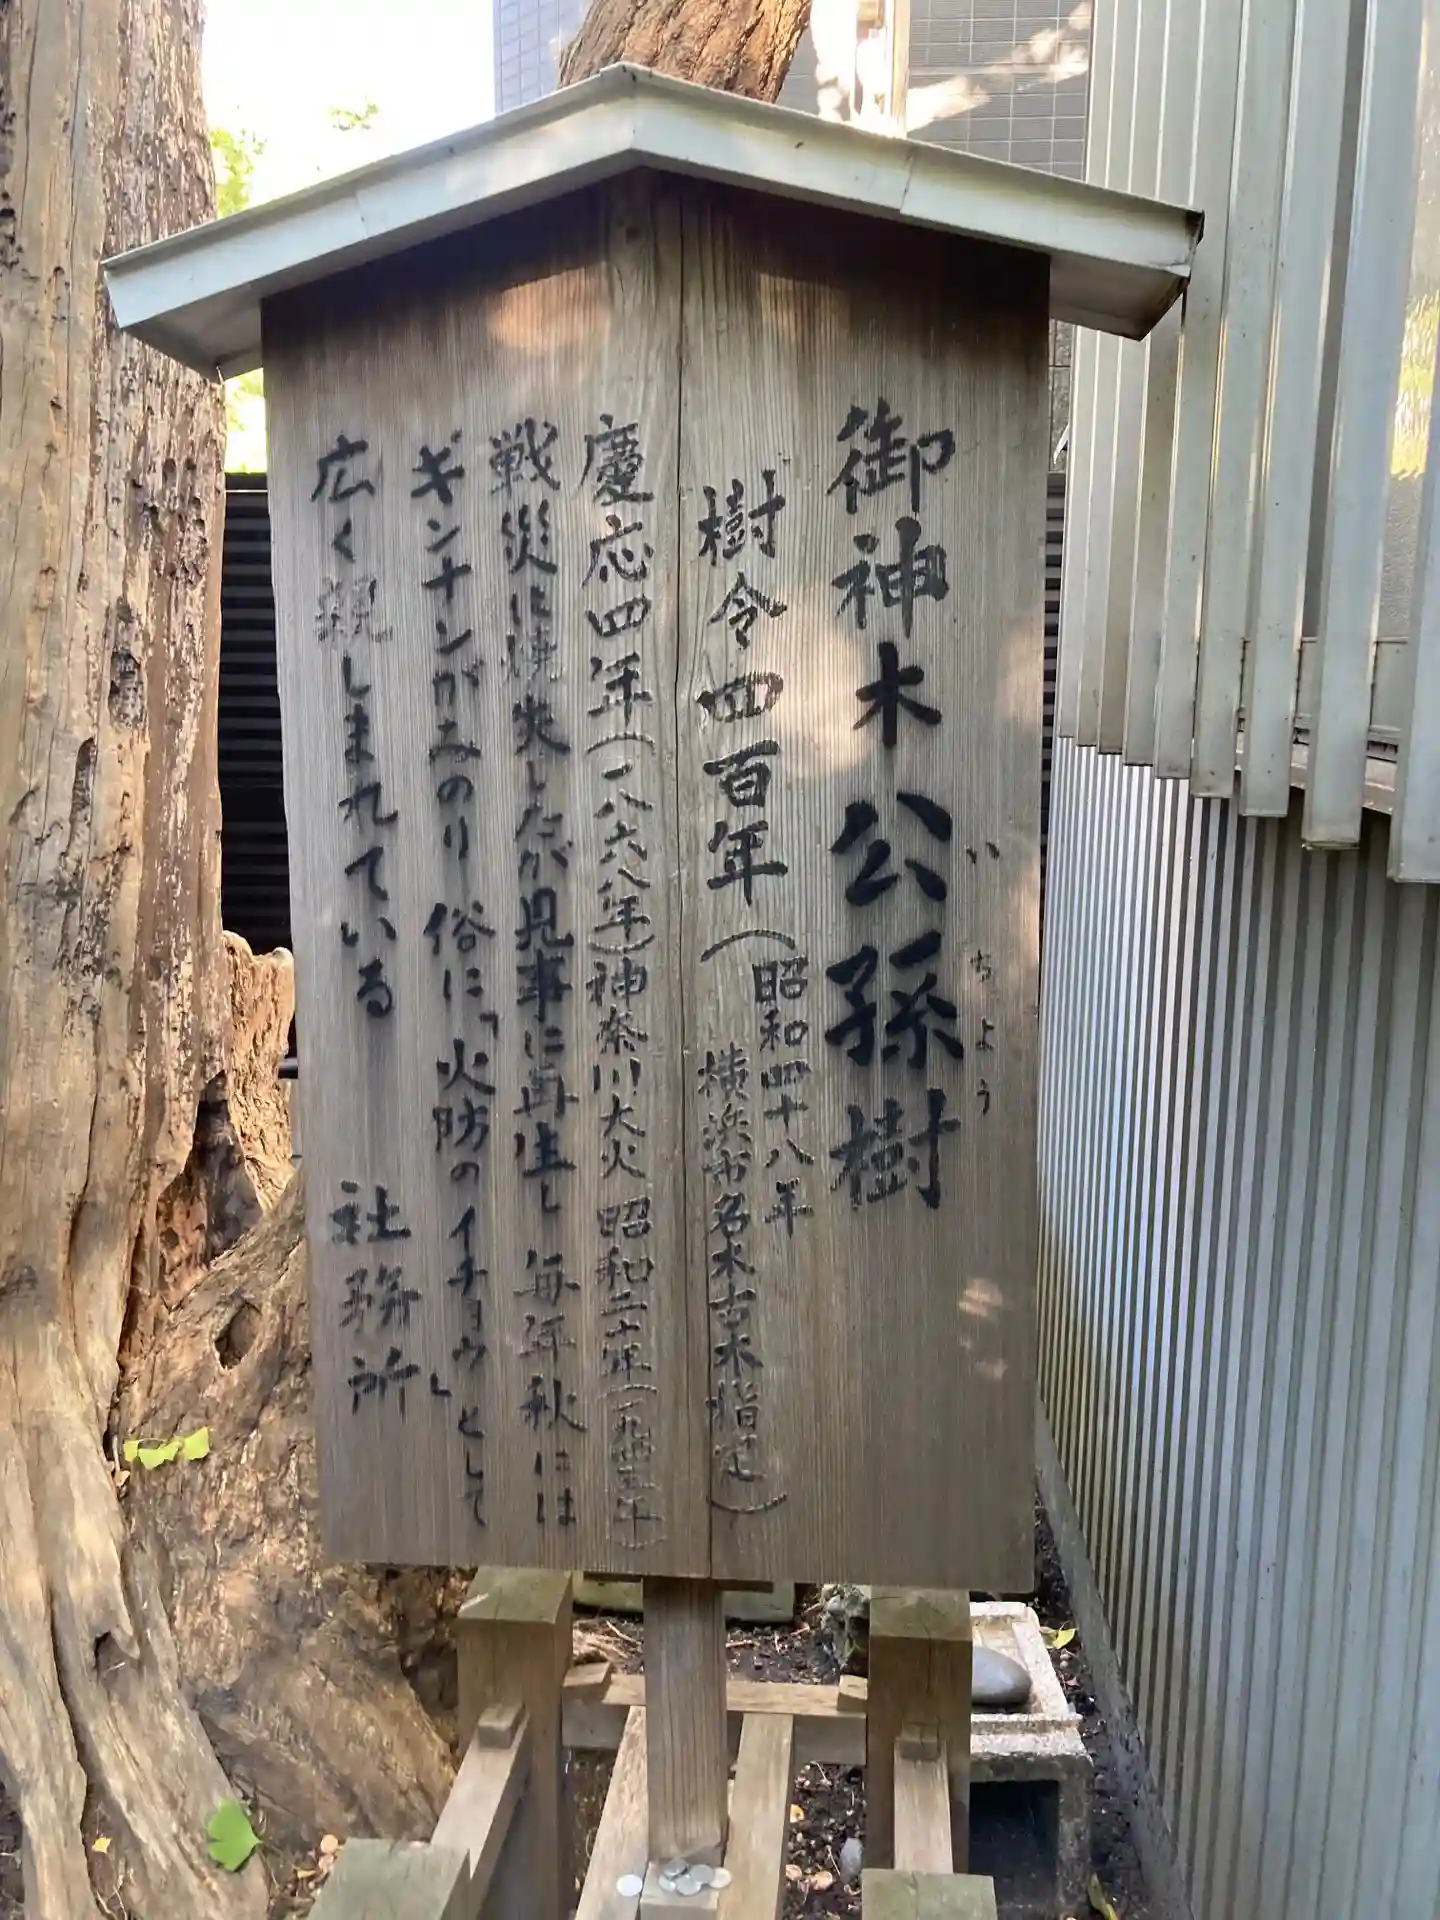 御神木公孫樹
いちょう
樹令四百年（昭和四十八年
横浜市名木古木指定）
慶応四年（一八六八年）神奈川大火 昭和二十年（一九四五年）
戦災に焼失したが見事に再生し 毎年秋には
ギンナンがみのり俗に「火防のイチョウ」として
広く親しまれている 社務所